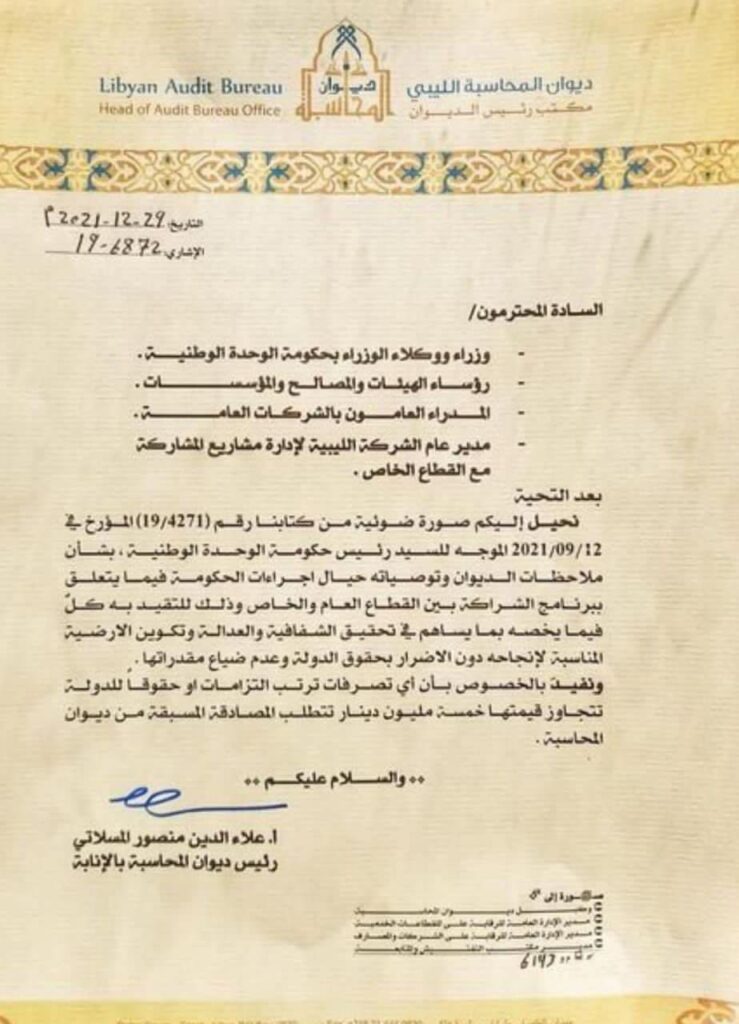 Libyan Audit Bureau
Head of Audit Bureau Office
ديوان المحاسبة
ديوان المحاسبة الليبي
مكتب رئيس الديوان
التاريخ: 2021-12-29 م
الإشاري: 19-6872
السادة المحترمون/
- وزراء ووكلاء الوزراء بحكومة الوحدة الوطنية .
- رؤساء الهيئات والمصالح والمؤسسات .
- المدراء العامون بالشركات العامة .
- مدير عام الشركة الليبية لإدارة مشاريع المشاركة
مع القطاع الخاص .
بعد التحية
نحيل إليكم صورة ضوئية من كتابنا رقم (19/4271) المؤرخ في
2021/09/12 الموجه للسيد رئيس حكومة الوحدة الوطنية ، بشأن
ملاحظات الديوان وتوصياته حيال اجراءات الحكومة فيما يتعلق
ببرنامج الشراكة بين القطاع العام والخاص وذلك للتقيد به كلٌ
فيما يخصه بما يساهم في تحقيق الشفافية والعدالة وتكوين الارضية
المناسبة لإنجاحه دون الاضرار بحقوق الدولة وعدم ضياع مقدراتها .
ونفيد بالخصوص بأن أي تصرفات ترتب التزامات او حقوقاً للدولة
تتجاوز قيمتها خمسة مليون دينار تتطلب المصادقة المسبقة من ديوان
المحاسبة .
** والسلام عليكم **
أ. علاء الدين منصور المسلاتي
رئيس ديوان المحاسبة بالإنابة
صورة إلى
وكيل ديوان المحاسبة
مدير الإدارة العامة للرقابة على القطاعات الخدمية
مدير الإدارة العامة للرقابة على الشركات والمصارف
مدير مكتب التفتيش والمتابعة